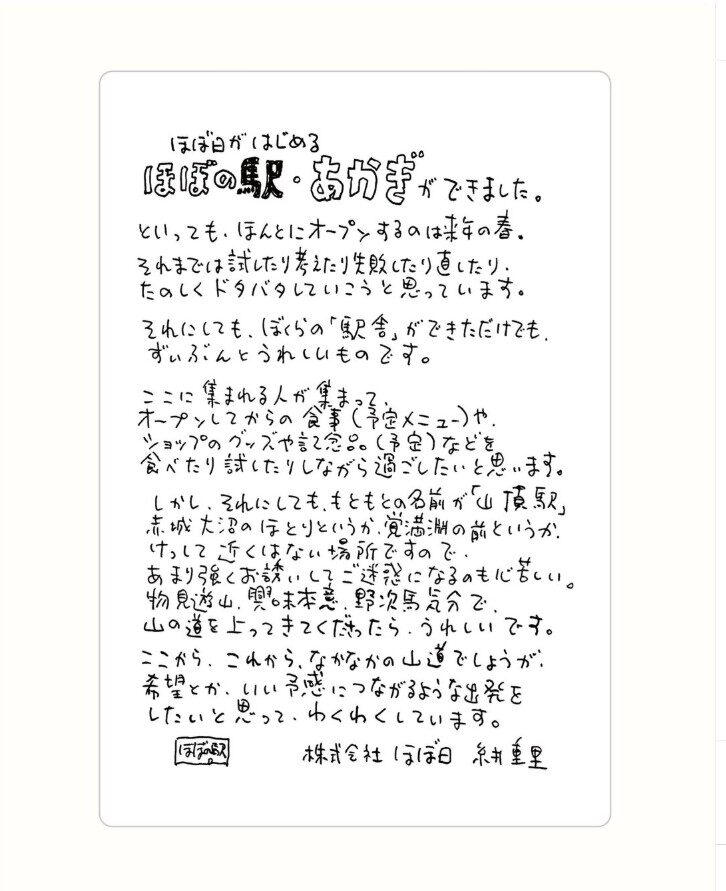 ほぼ日がはじめる
ほぼの駅・あかぎができました。
といっても、ほんとにオープンするのは来年の春。
それまでは試したり考えたり失敗したり直したり、
たのしくドタバタしていこうと思っています。
それにしても、ぼくらの「駅舎」ができただけでも、
ずいぶんとうれしいものです。
ここに集まれる人が集まって、
オープンしてからの食事(予定メニュー)や、
ショップのグッズや記念品(予定)などを
食べたり試したりしながら過ごしたいと思います。
しかし、それにしても、もともとの名前が「山頂駅」
赤城大沼のほとりというか、覚満淵の前というか、
けっして近くはない場所ですので、
あまり強くお誘いしてご迷惑になるのも心苦しい。
物見遊山、興味本意、野次馬気分で、
山の道を上ってきてくださったら、うれしいです。
ここから、これから、なかなかの山道でしょうが、
希望とか、いい予感につながるような出発を
したいと思って、わくわくしています。
ほぼの駅
株式会社ほぼ日 糸井重里